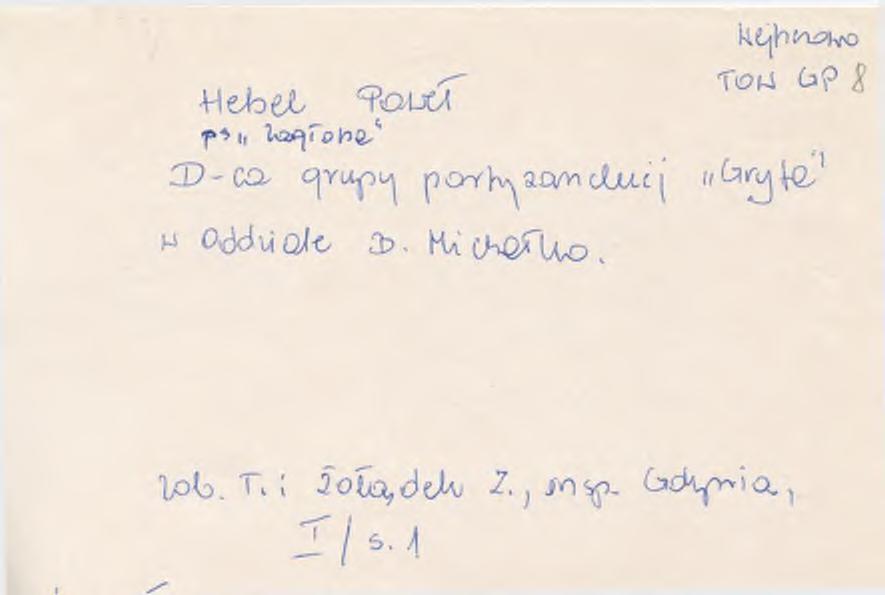 Wejherowo
TOW GP 8
Hebel Paweł
ps „Zagłoba"
D-ca grupy partyzanckiej „Gryfa"
w oddziale D. Michałko.
zob. T. i Żołądek Z., msp. Gdynia,
I / s. 1